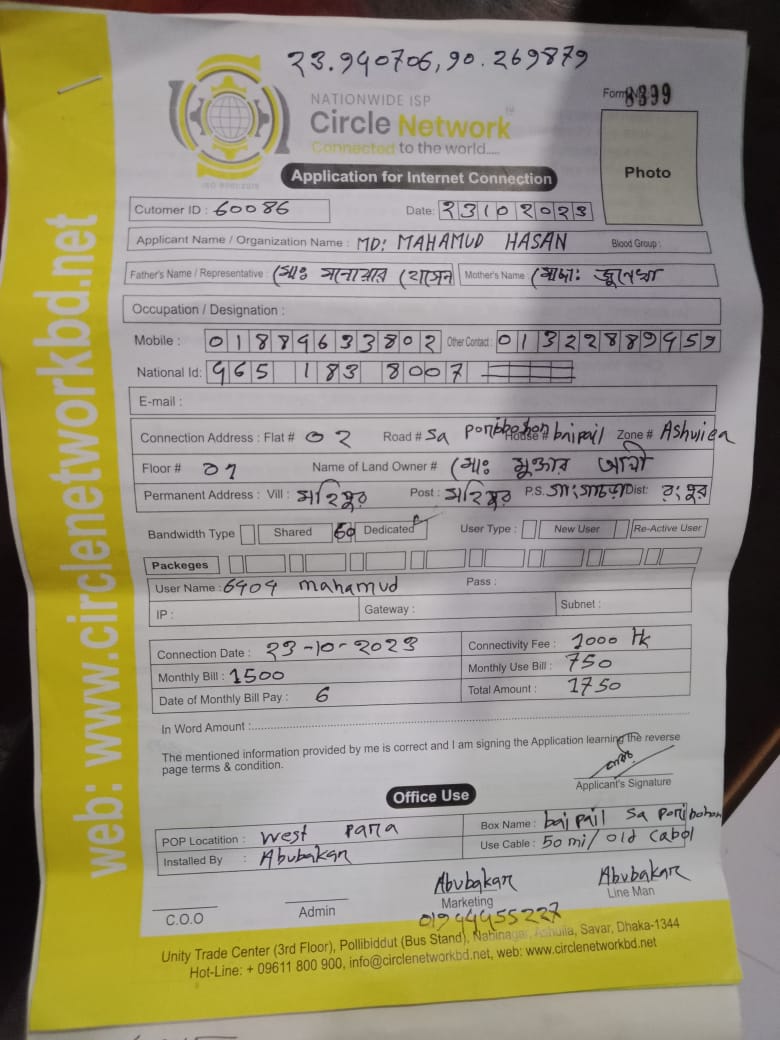 23.940706, 90.269879
Form 8399
NATIONWIDE ISP
Circle Network
Connected to the world.....
ISO 9001:2015
Photo
Application for Internet Connection
Cutomer ID : 60086 Date: 23102023
Applicant Name / Organization Name : MD: MAHAMUD HASAN Blood Group :
Father's Name / Representative : মোঃ মনোয়ার হোসেন Mother's Name মোছাঃ জুলেখা
Occupation / Designation :
Mobile : 01889633802 Other Contact : 01322889959
National Id: 965 183 8007
E-mail :
Connection Address : Flat # 02 Road # Sa poribohon House # baipail Zone # Ashuliea
Floor # 01 Name of Land Owner # মোঃ মুক্তার আলী
Permanent Address : Vill : মহিপুর Post : মহিপুর P.S. গংগাচড়া Dist: রংপুর
Bandwidth Type Shared 60 Dedicated User Type : New User Re-Active User
Packeges
User Name : 6404 mahamud Pass :
IP : Gateway : Subnet :
Connection Date : 23-10-2023 Connectivity Fee : 1000 tk
Monthly Bill : 1500 Monthly Use Bill : 750
Date of Monthly Bill Pay : 6 Total Amount : 1750
In Word Amount :
The mentioned information provided by me is correct and I am signing the Application learning the reverse
page terms & condition.
Applicant's Signature
Office Use
POP Locatition : West para Box Name : baipail Sa poribohon
Installed By : Abubakar Use Cable : 50 mi/old Cabol
Abubakar Abubakar
C.O.O Admin Marketing Line Man
01944455227
Unity Trade Center (3rd Floor), Pollibiddut (Bus Stand), Nabinagar, Ashulia, Savar, Dhaka-1344
Hot-Line: + 09611 800 900, info@circlenetworkbd.net, web: www.circlenetworkbd.net
web: www.circlenetworkbd.net